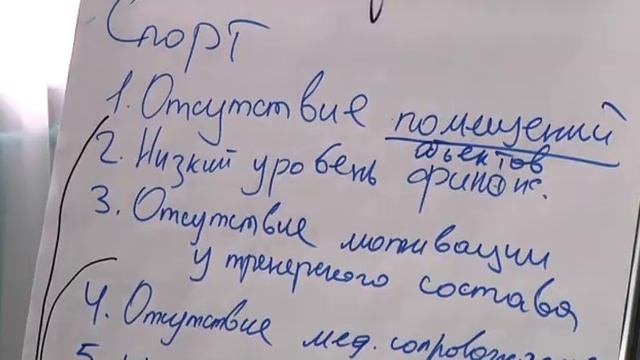 Спорт
1. Отсутствие помещений
объектов
2. Низкий уровень финанс.
3. Отсутствие мотивации
у тренерского состава
4. Отсутствие мед.
5.